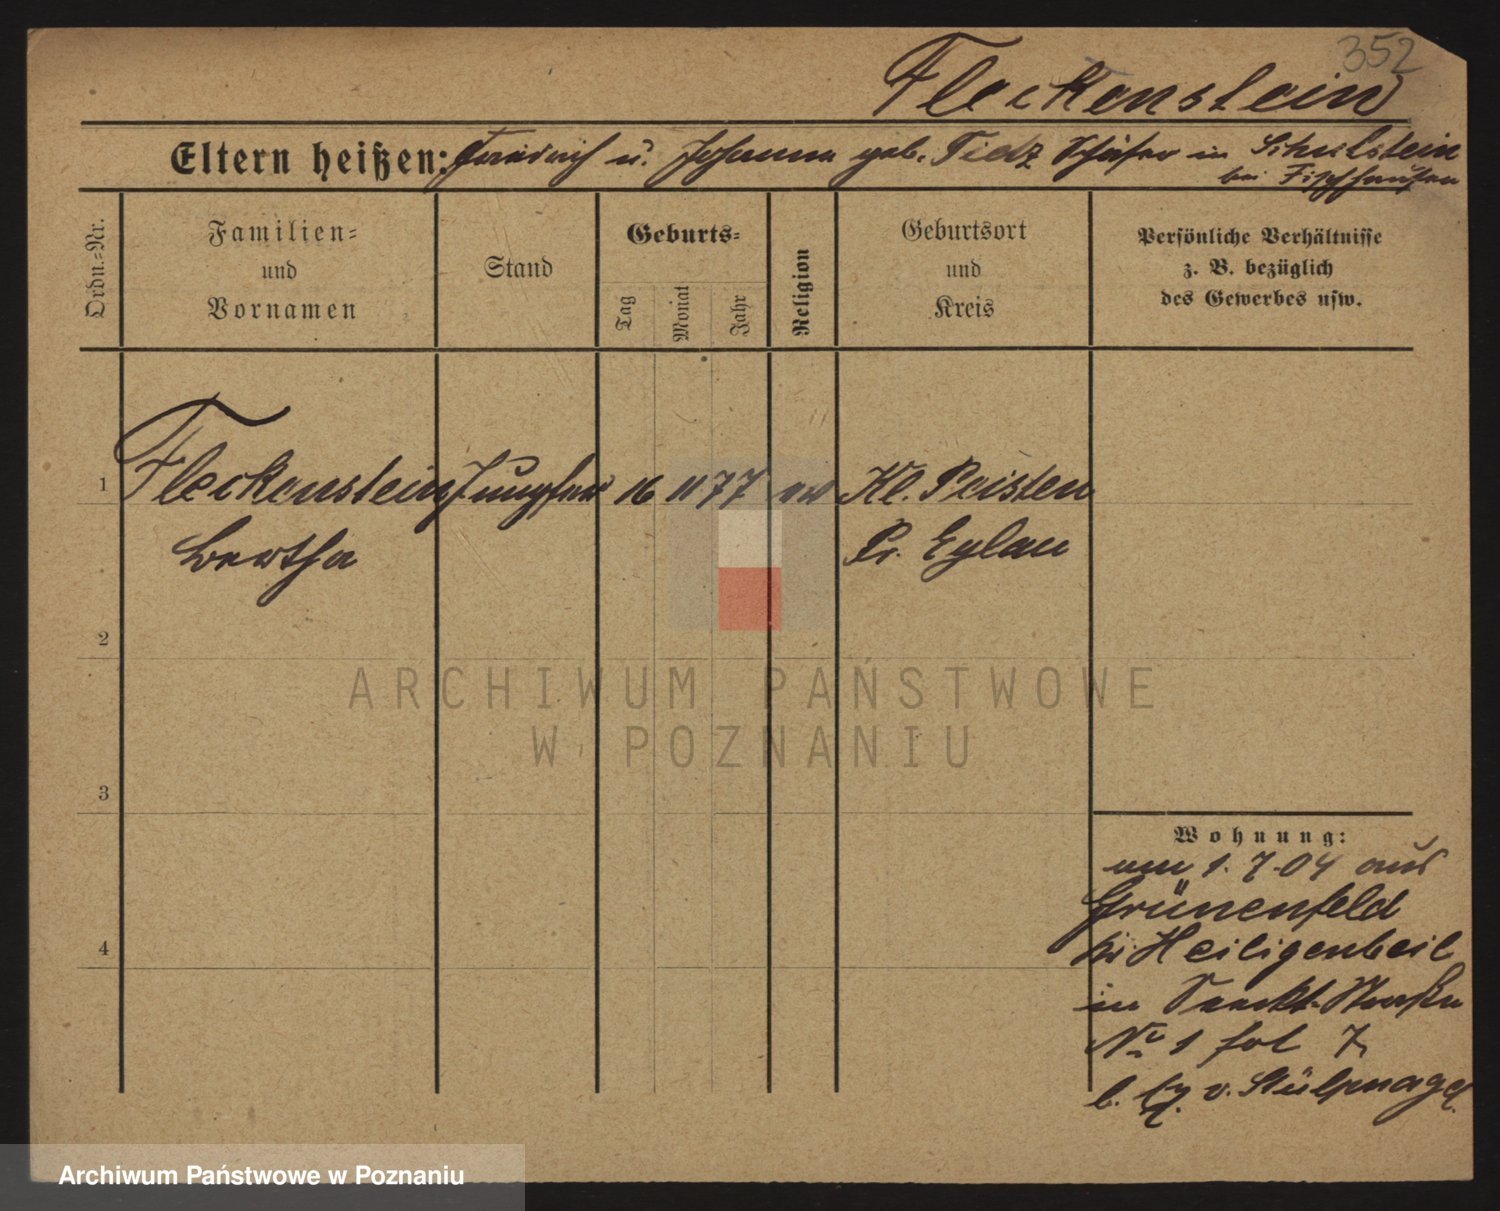 352
Fleckenstein
Eltern heißen: Friedrich u. Johanna geb. Tietz Schäfer in Schulstein
bei Fischhausen
Ordn.-Nr.
Familien- und Vornamen
Stand
Geburts-
Tag
Monat
Jahr
Religion
Geburtsort und Kreis
Persönliche Verhältnisse
z. B. bezüglich
des Gewerbes usw.
1 Fleckenstein Jungfer 16 11 77 ev Kl. Peisten
Bertha Pr. Eylau
2
3
4
Wohnung:
am 1.7.04 aus
Grünenfeld
Heiligenbeil
in
No 1 fol 7
b. v. Stülpnagel.
ARCHIWUM PAŃSTWOWE
W POZNANIU
Archiwum Państwowe w Poznaniu